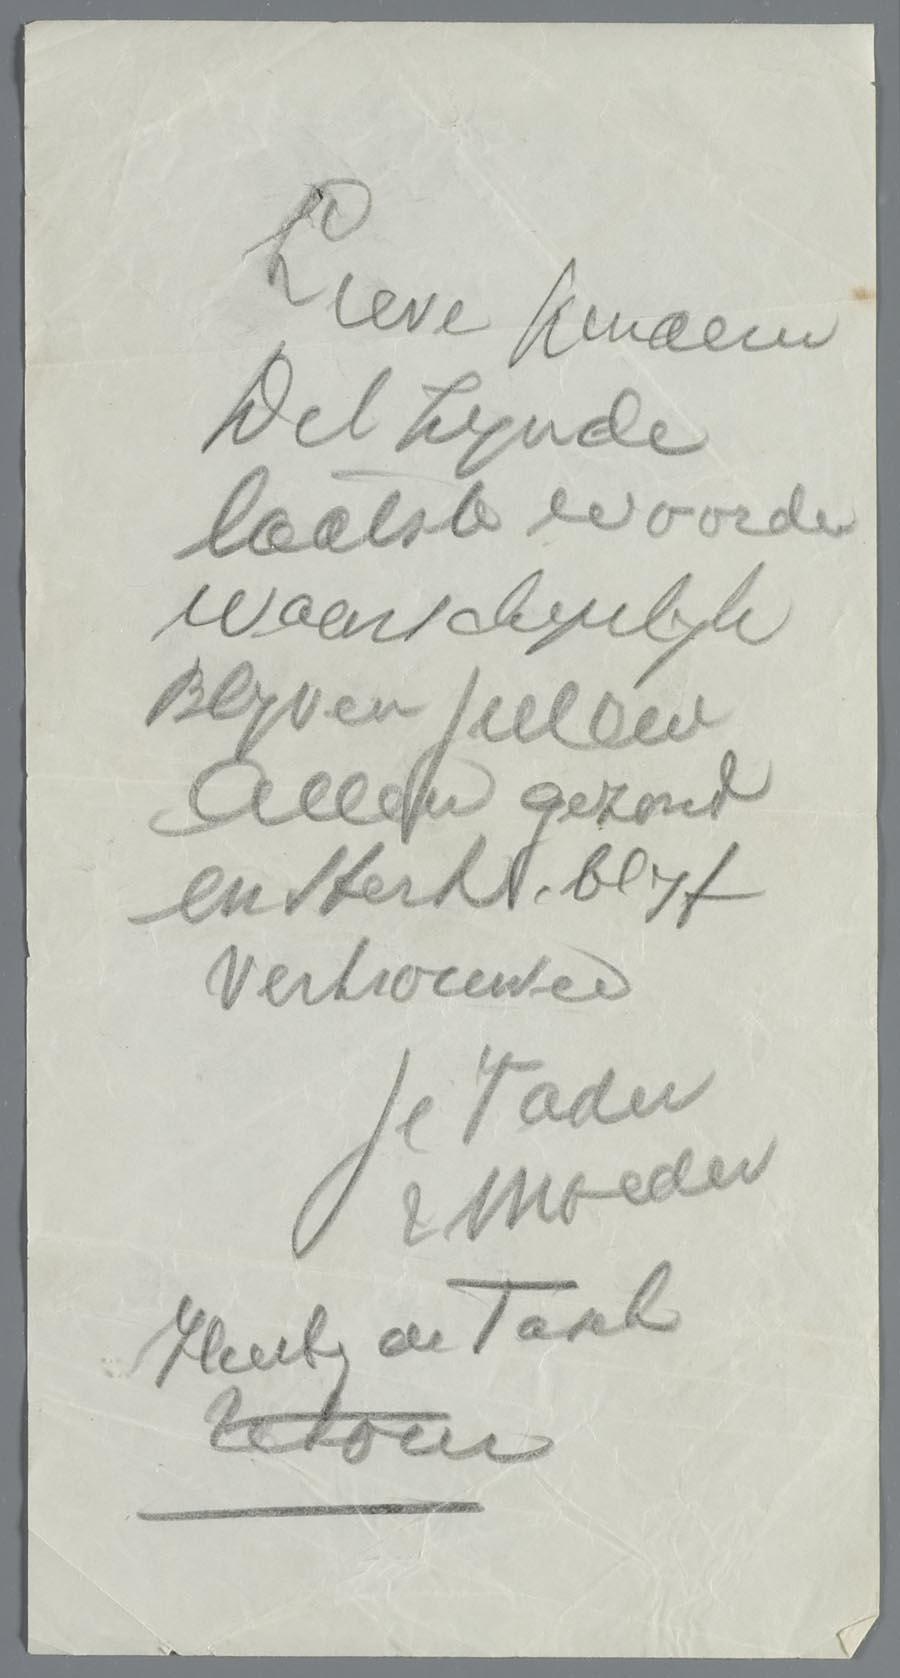 Lieve kinderen
Dit zynde
laatste woorden
waarschynlyk
Blyven jullew
Allen gezond
en sterk. blyf
vertrouwen
Je Vader
& Moeder
de Tasch
Retour